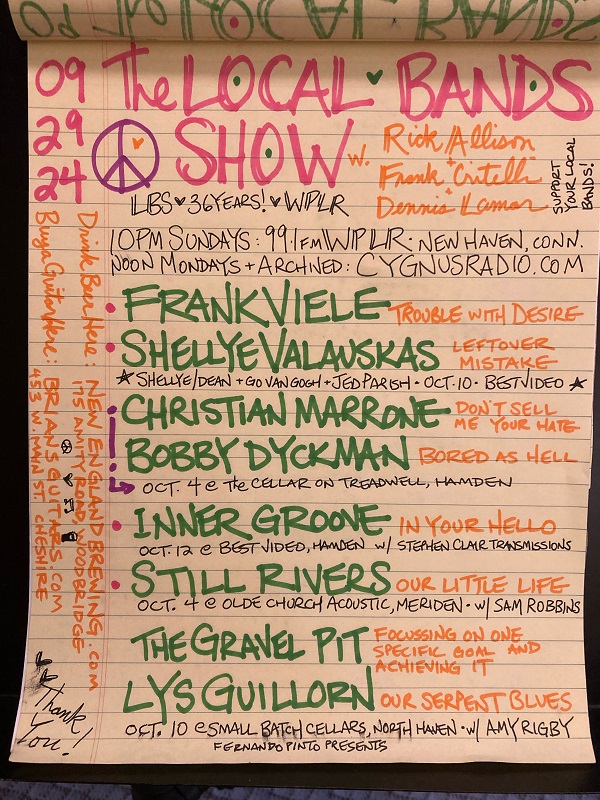 09
29
24
The LOCAL BANDS
SHOW w. Rick Allison
+ Frank Critelli
+ Dennis Lamar
SUPPORT
YOUR LOCAL
BANDS!
LBS ♥ 36 YEARS! ♥ WPLR
10PM SUNDAYS: 99.1FM WPLR · NEW HAVEN, CONN.
NOON MONDAYS + ARCHIVED: CYGNUSRADIO.COM
FRANK VIELE TROUBLE WITH DESIRE
SHELLYE VALAUSKAS LEFTOVER
MISTAKE
★ SHELLYE/DEAN + GO VAN GOGH + JED PARISH · OCT. 10 · BEST VIDEO ★
CHRISTIAN MARRONE DON'T SELL
ME YOUR HATE
BOBBY DYCKMAN BORED AS HELL
OCT. 4 @ The CELLAR ON TREADWELL, HAMDEN
INNER GROOVE IN YOUR HELLO
OCT. 12 @ BEST VIDEO, HAMDEN w/ STEPHEN CLAIR TRANSMISSIONS
STILL RIVERS OUR LITTLE LIFE
OCT. 4 @ OLDE CHURCH ACOUSTIC, MERIDEN · w/ SAM ROBBINS
THE GRAVEL PIT FOCUSSING ON ONE
SPECIFIC GOAL AND
ACHIEVING IT
LYS GUILLORN OUR SERPENT BLUES
OCT. 10 @ SMALL BATCH CELLARS, NORTH HAVEN · w/ AMY RIGBY
FERNANDO PINTO PRESENTS
Drink Beer Here: NEW ENGLAND BREWING.COM
175 AMITY ROAD, WOODBRIDGE
Buy a Guitar Here: BRIAN'S GUITARS.COM
453 W. MAIN ST. CHESHIRE
Thank
You!